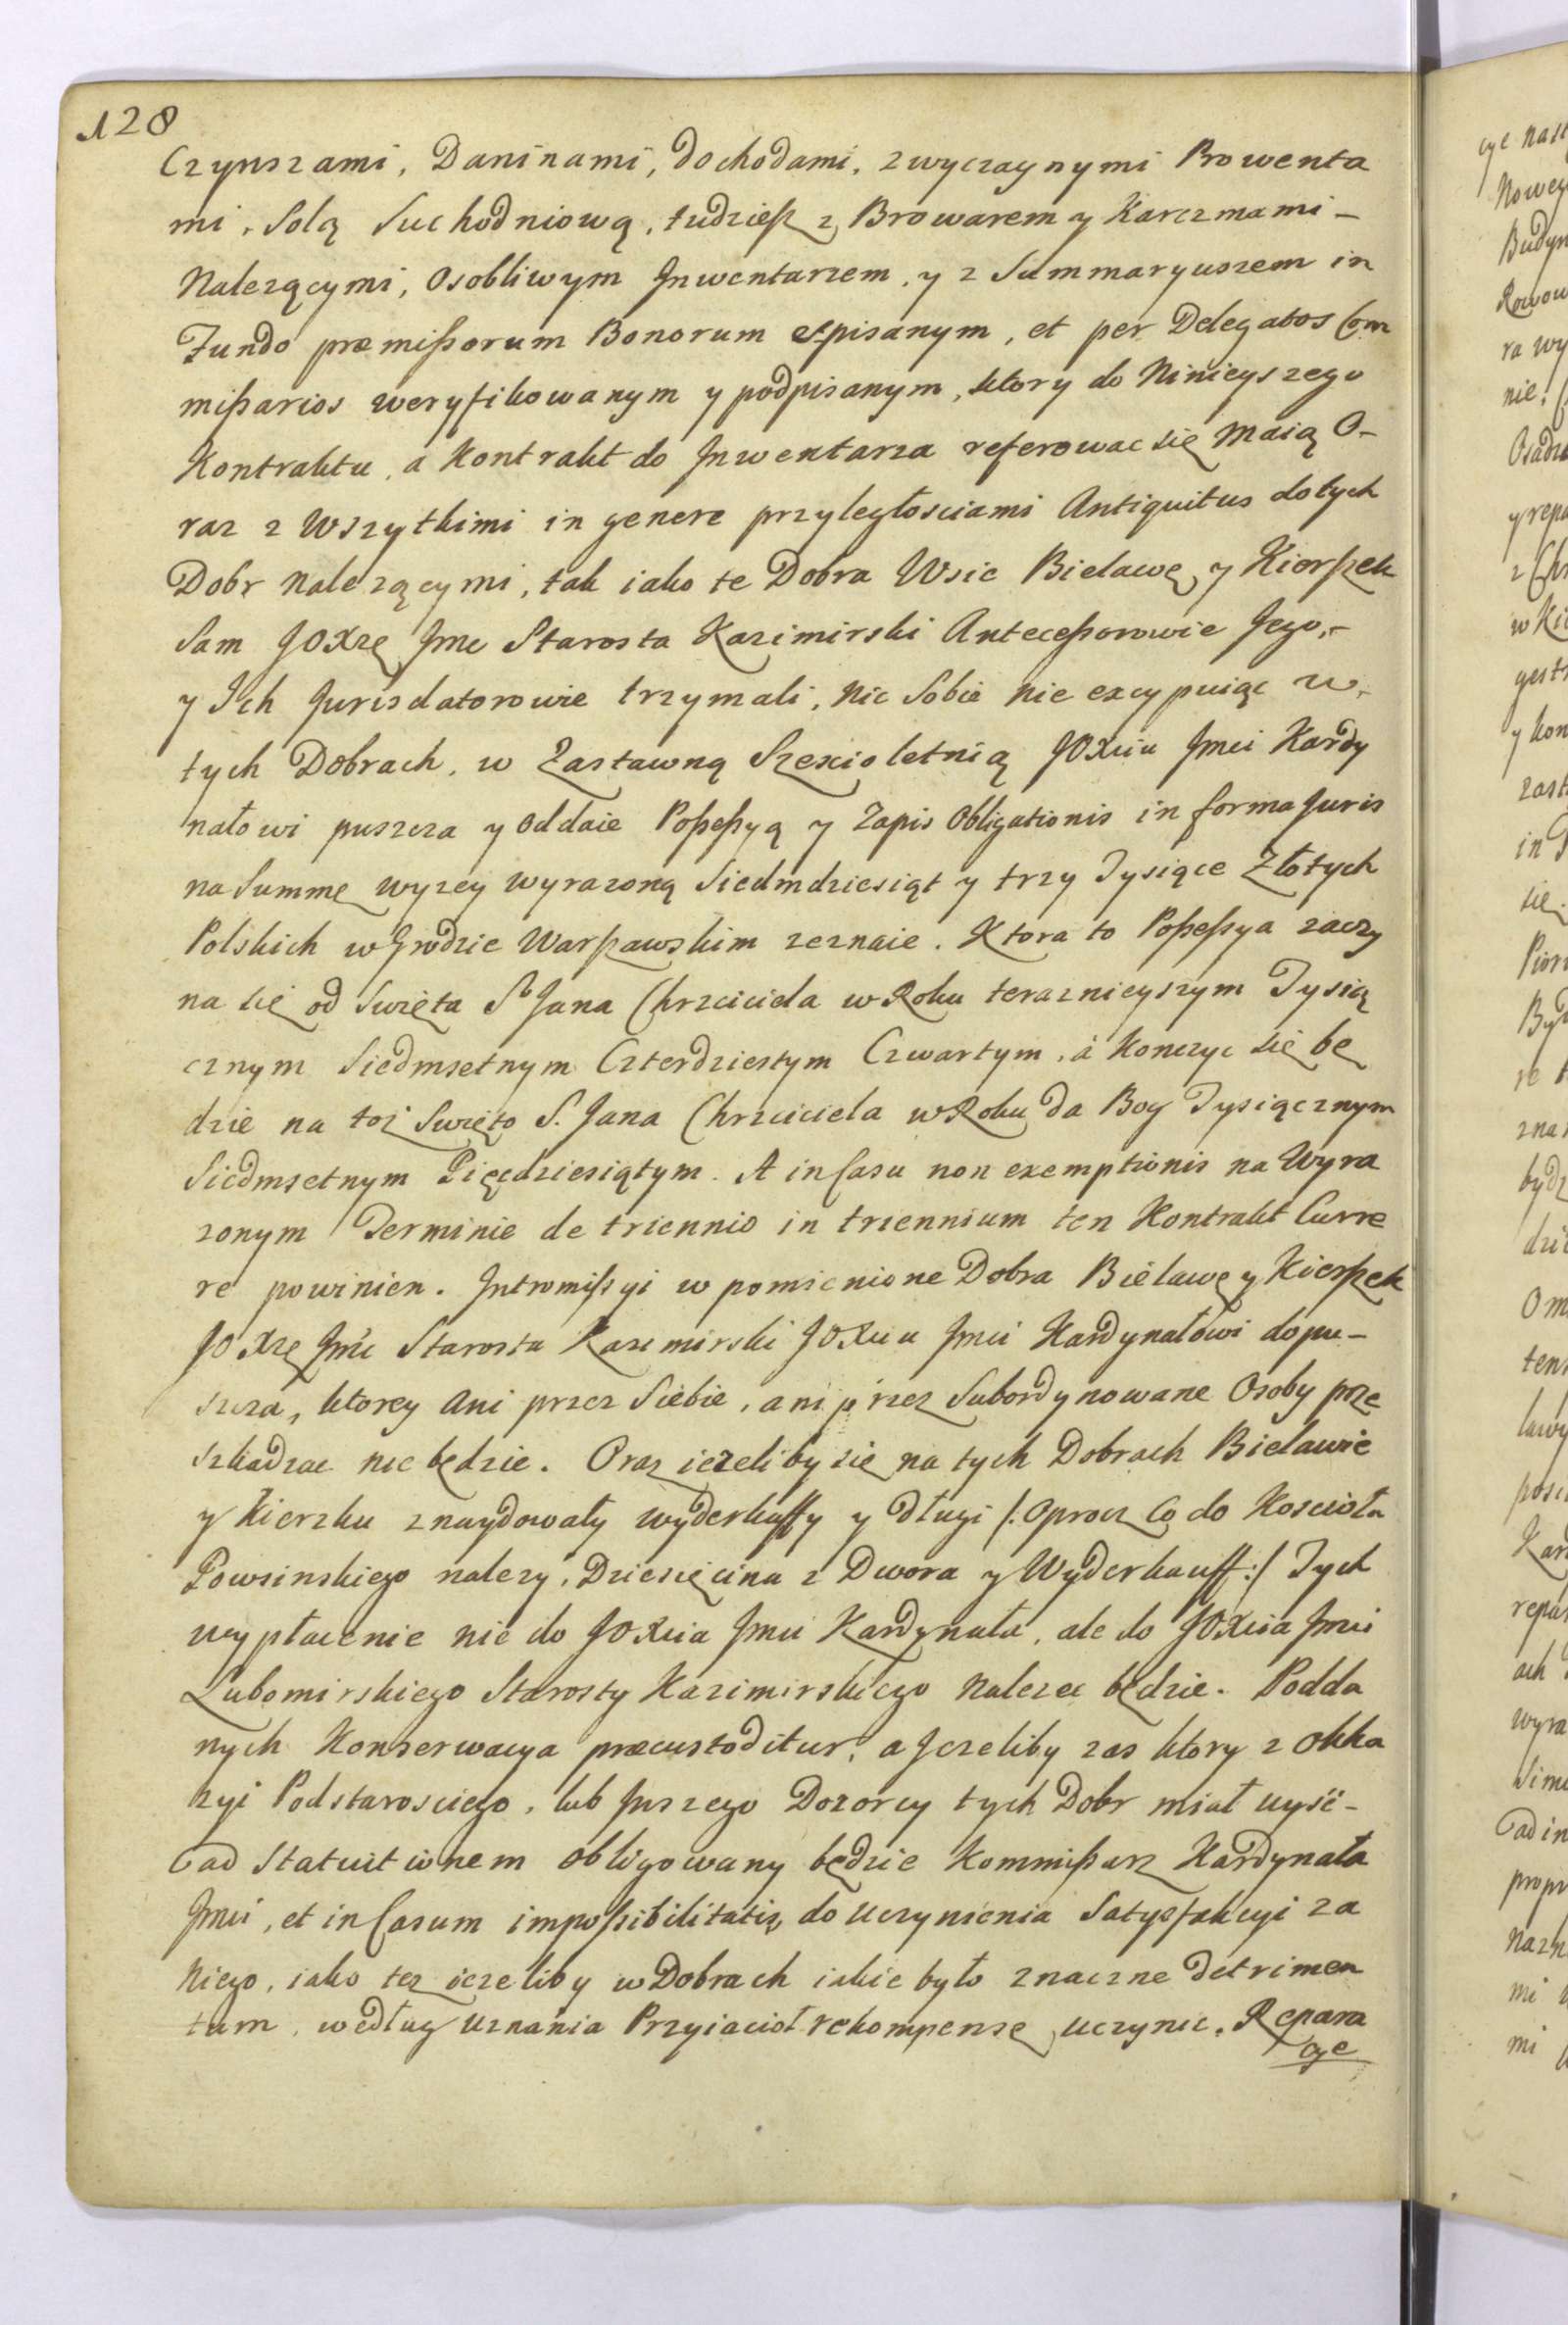 128
Czynszami, Daninami, dochodami, zwyczaynymi Prowenta
mi, Solą Suchodniową, tudzieß z Browarem y Karczmami -
Nalezącymi, Osobliwym Jnwentarzem, y z Summaryuszem in
Fundo præmißorum Bonorum spisanym, et per Delegatos Com
mißarios weryfikowanym y podpisanym, ktory do Ninieyszego
Kontraktu, a Kontrakt do Jnwentarza referowac się maią O-
raz z Wszytkimi in genere przyległosciami Antiquitus do tych
Dobr nalezącymi, tak iako te Dobra Wsie Bielawę y Kierßek
Sam JOXzę Jmc Starosta Kazimirski Anteceßorowie Jego,-
y Jch Jurisdatorowie trzymali, nic Sobie nie excypuiąc w,
tych Dobrach, w Zastawną Szescioletnią JOXciu Jmci Kardy
nałowi puszcza y oddaie Poßeßyą y Zapis Obligationis in forma Juris
na Summę wyzey wyrazoną Siedmdziesiąt y trzy Tysiące Złotych
Polskich w Grodzie Warßawskim zeznaie. Ktora to Poßeßya zaczy
na się od Swięta Sº Jana Chrzciciela w Roku teraznieyszym Tysią
cznym Siedmsetnym Czterdziestym Czwartym, á Konczyc się bę
dzie na toż Swięto S. Jana Chrzciciela w Roku da Bog Tysiącznym
Siedmsetnym Pięcdziesiątym. A in Casu non exemptionis na Wyra
zonym Terminie de triennio in triennium ten Kontrakt Curre
re powinien. Jntromißyi w pomienione Dobra Bielawę y Kierßek
JOXzę Jmc Starosta Kazimirski JOXciu Jmci Kardynałowi dopu-
szcza, ktorey ani przez Siebie, ani przez Subordynowane Osoby prze
szkadzac nie będzie. Oraz iezeliby się na tych Dobrach Bielawie
y Kierzku znaydowały wyderkaffy y długi /: oprocz Co do Kosciola
Powsinskiego nalezy, Dziesięcina z Dwora y Wyderkauff :/ Tych
wypłacenie nie do JOXcia Jmci Kardynała, ale do JOXcia Jmci
Lubomirskiego Starosty Kazimirskiego nalezec będzie. Podda
nych Konserwacya præcustoditur, a Jezeliby zas ktory z Okka
zyi Podstarosciego, lub Jnszego Dozorcy tych Dobr miał uysc -
ad Statuitionem obligowany będzie Kommißarz Kardynała
Jmci, et in Casum impoßibilitatis, do uczynienia Satysfakcyi za
niego, iako tez iezeliby w Dobrach iakie było znaczne detrimen
tum, według uznania Przyiacioł rekompensę uczynic. Repara
cye